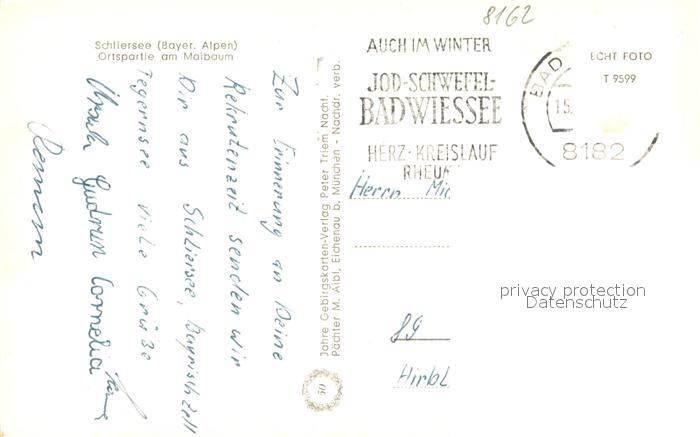 8162
Schliersee (Bayer. Alpen)
Ortspartie am Maibaum
Zur Erinnerung an Deine
Rekrutenzeit senden wir
Dir aus Schliersee, Bayrischzell
Tegernsee viele Grüße
Ursula Gudrun Cornelia
Jahre Gebirgskarten-Verlag Peter Triem Nachf.
Pächter M. Aibl, Eichenau b. München - Nachdr. verb.
50
AUCH IM WINTER
JOD-SCHWEFEL-
BAD WIESSEE
HERZ-KREISLAUF
RHEUM
BAD
15.
8182
ECHT FOTO
T 9599
Herrn Mic
89
Hirbl
privacy protection
Datenschutz